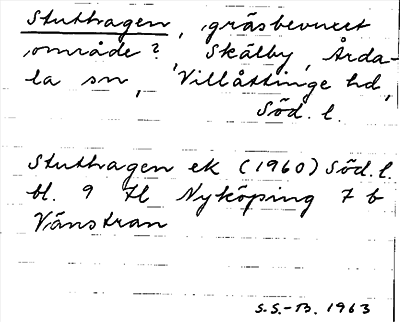 Stuthagen, gräsbevuxet
område?, Skälby, Årda-
la sn, Villåttinge hd,
Söd. l.
Stuthagen ek (1960) Söd. l.
bl. 9 Hl Nyköping 7 b
Vänstran
S.S.-B. 1963